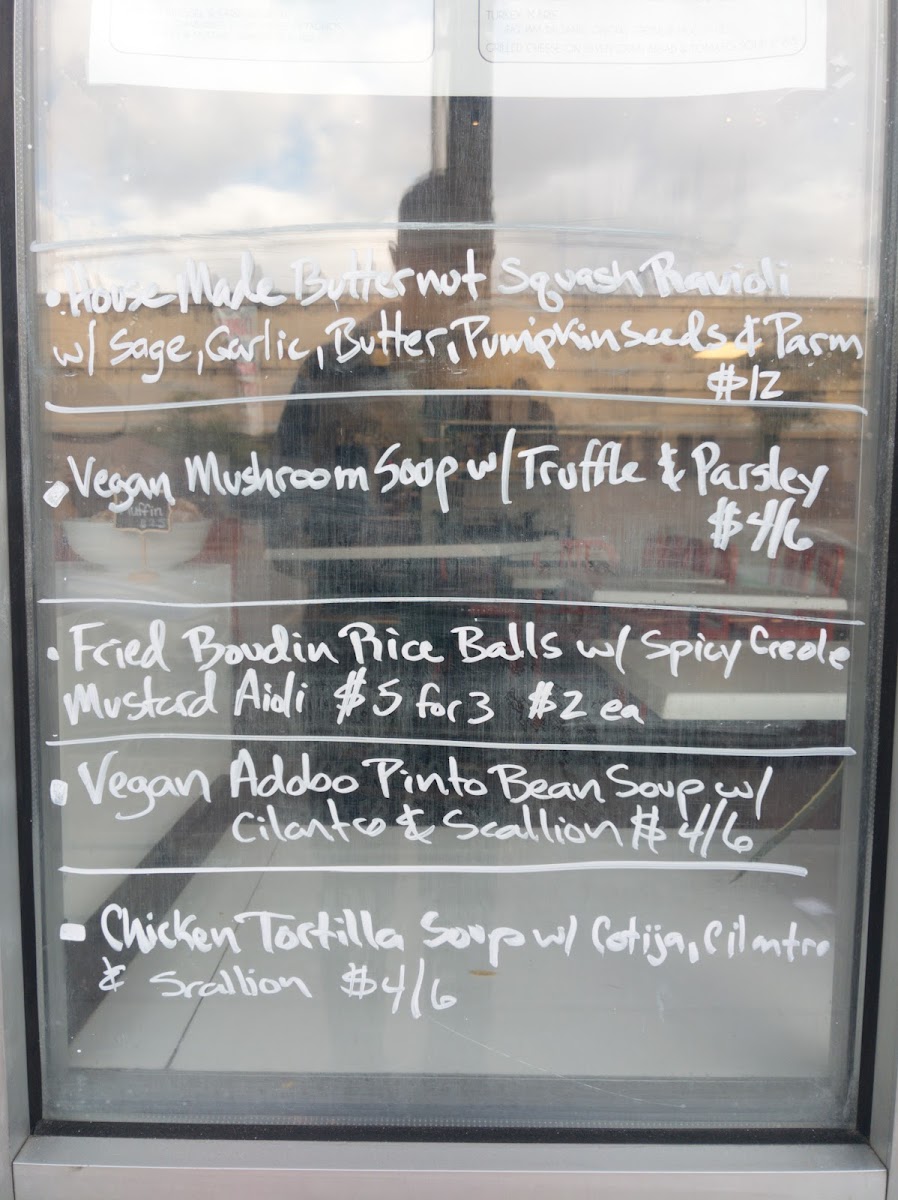 TURKEY
GRILLED CHEESE ON SEVEN GRAIN BREAD & TOMATO SOUP
• House Made Butternut Squash Ravioli
w/ Sage, Garlic, Butter, Pumpkin seeds & Parm
$12
Vegan Mushroom Soup w/ Truffle & Parsley
$4/6
Muffin
• Fried Boudin Rice Balls w/ Spicy Creole
Mustard Aioli $5 for 3 $2 ea
Vegan Adobo Pinto Bean Soup w/
Cilantro & Scallion $4/6
Chicken Tortilla Soup w/ Cotija, Cilantro
& Scallion $4/6